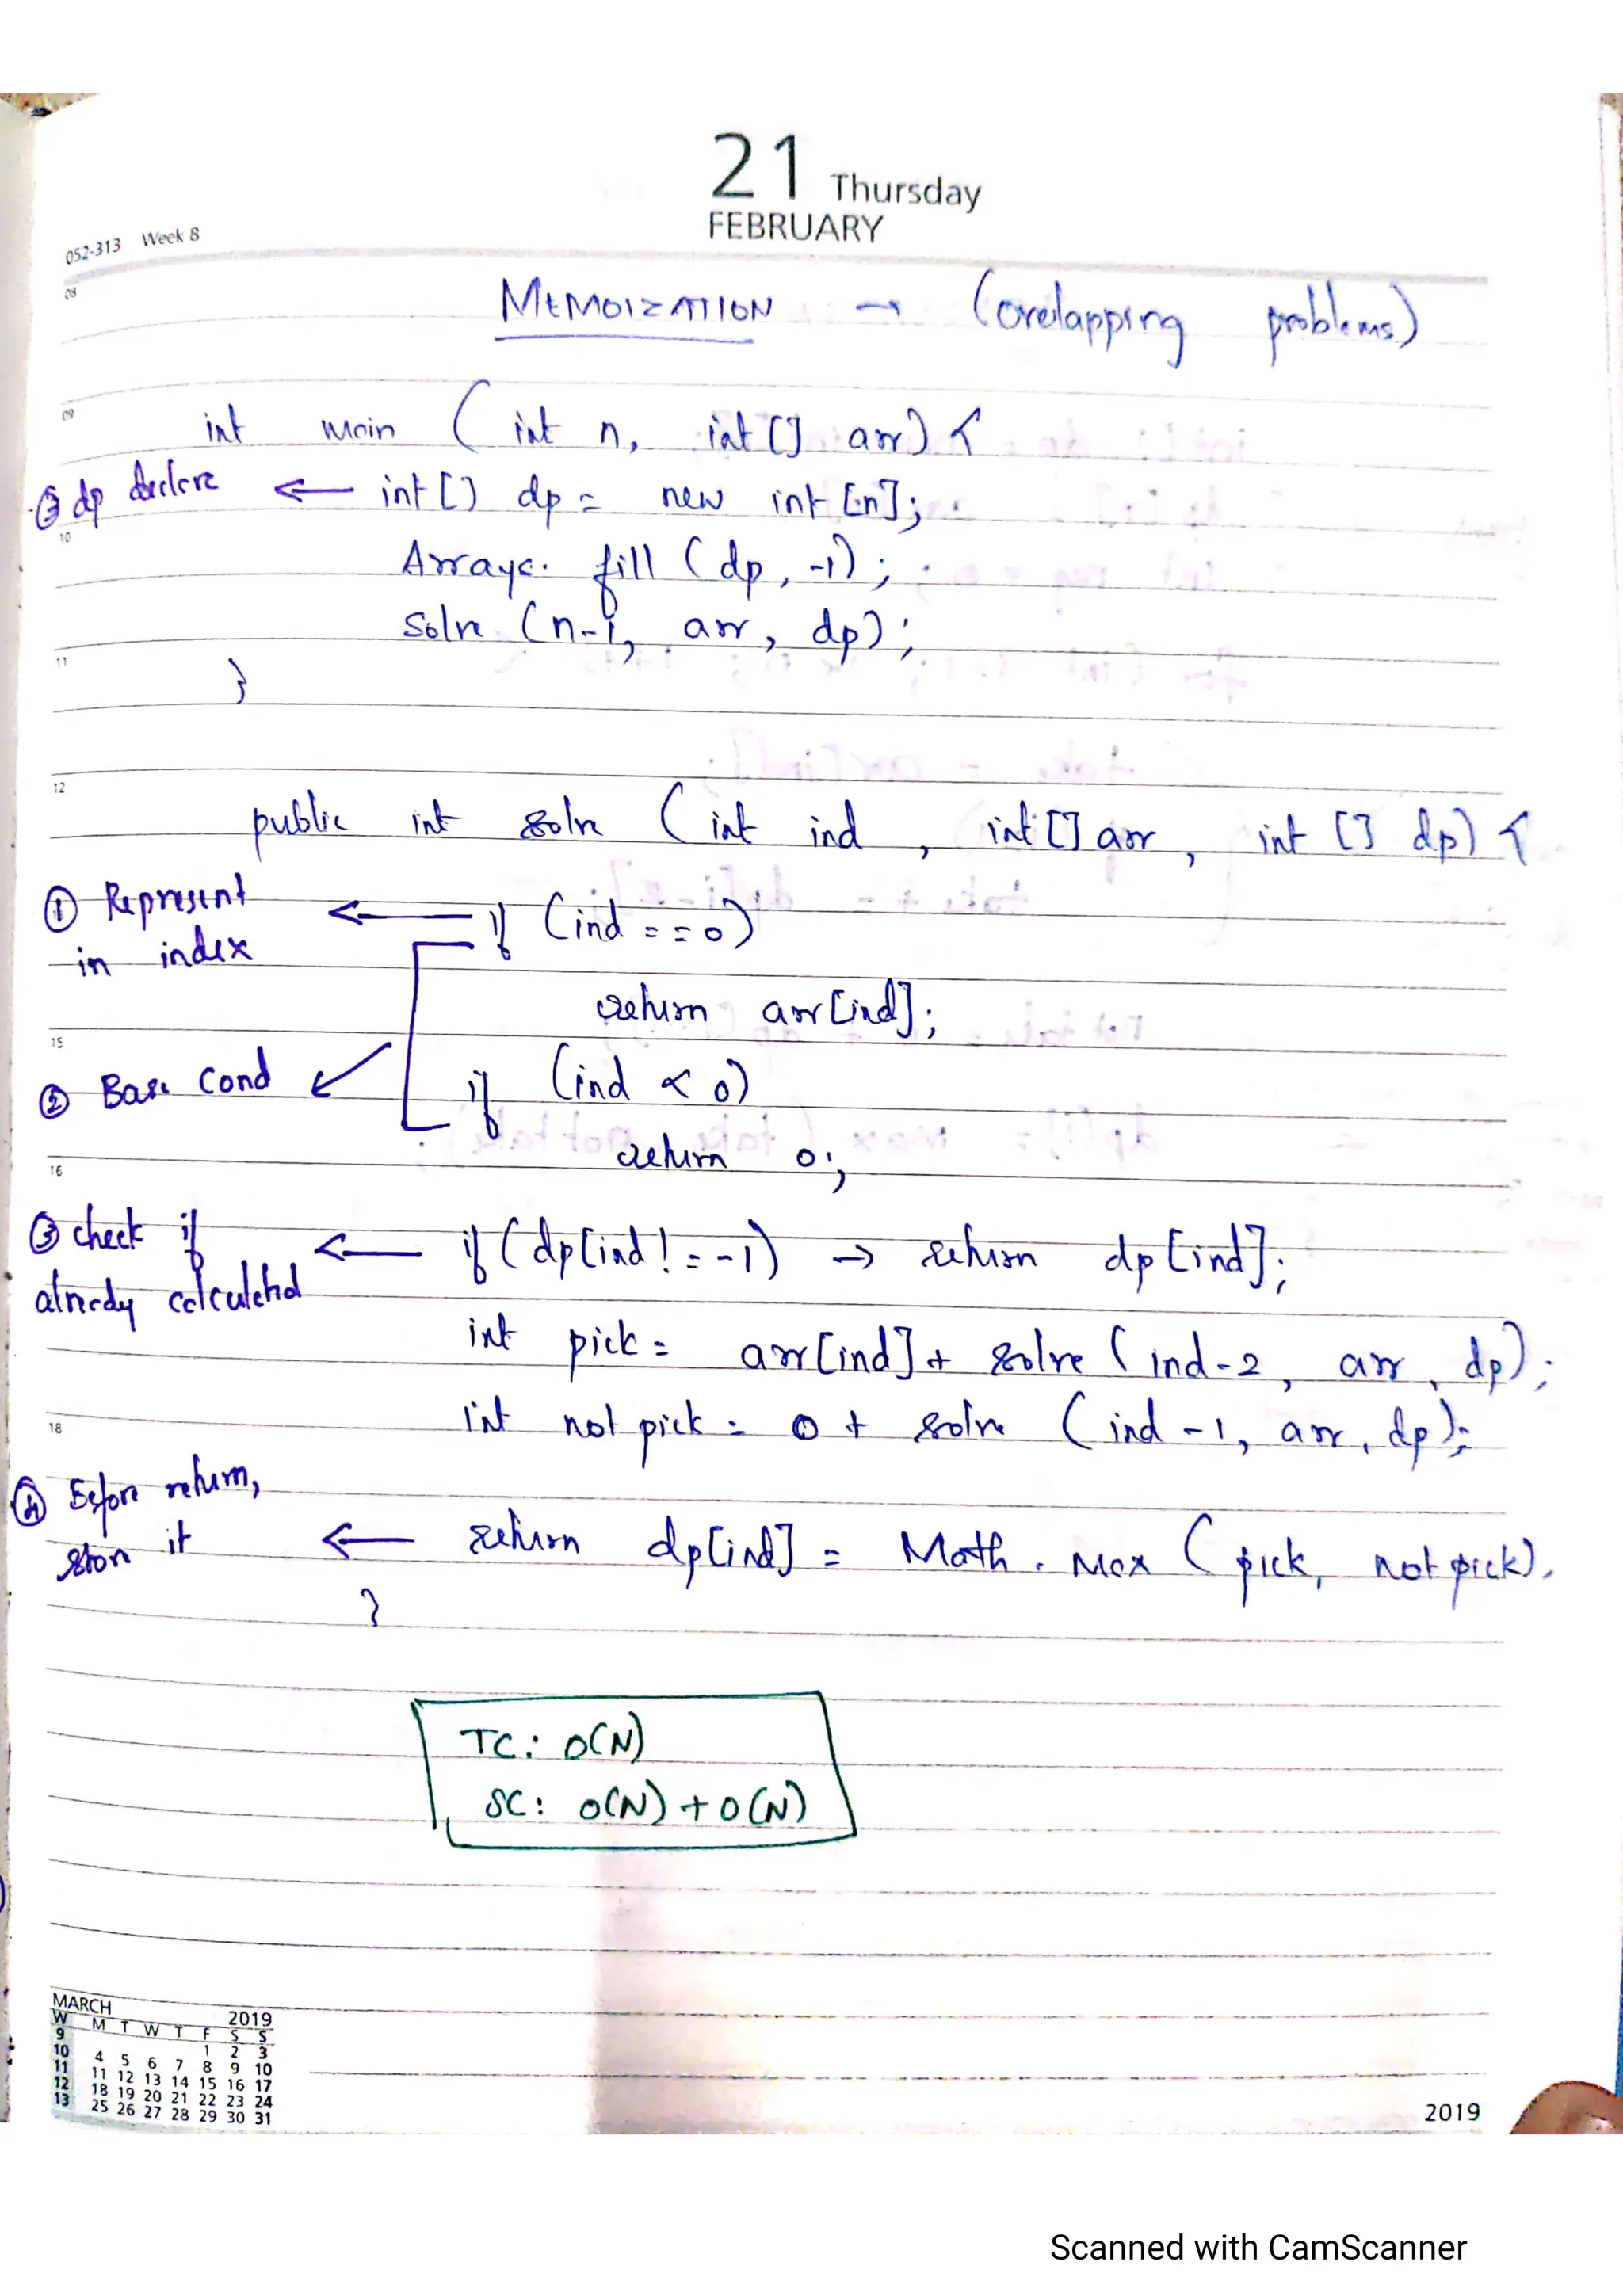 21 Thursday
FEBRUARY
052-313 Week 8
08
MEMOIZATION → (overlapping problems)
09
int main ( int n, int [] arr) {
dp declare ← int [] dp = new int [n];
10
Arrays. fill ( dp , -1) ;
solve (n-1, arr, dp) ;
11
}
12
public int solve ( int ind , int [] arr , int [] dp) {
① Represent ← if (ind == 0)
in index
return arr[ind];
15
② Base Cond ↙ if (ind < 0)
return 0;
16
③ check if ← if (dp[ind != -1) → return dp [ind];
already calculated
int pick = arr[ind] + solve ( ind-2, arr, dp);
18
int not pick = 0 + solve ( ind -1, arr, dp);
④ Before return,
store it ← return dp[ind] = Math . Max ( pick, not pick).
}
TC: O(N)
SC: O(N) + O(N)
MARCH 2019
W M T W T F S S
9 1 2 3
10 4 5 6 7 8 9 10
11 11 12 13 14 15 16 17
12 18 19 20 21 22 23 24
13 25 26 27 28 29 30 31
2019
Scanned with CamScanner